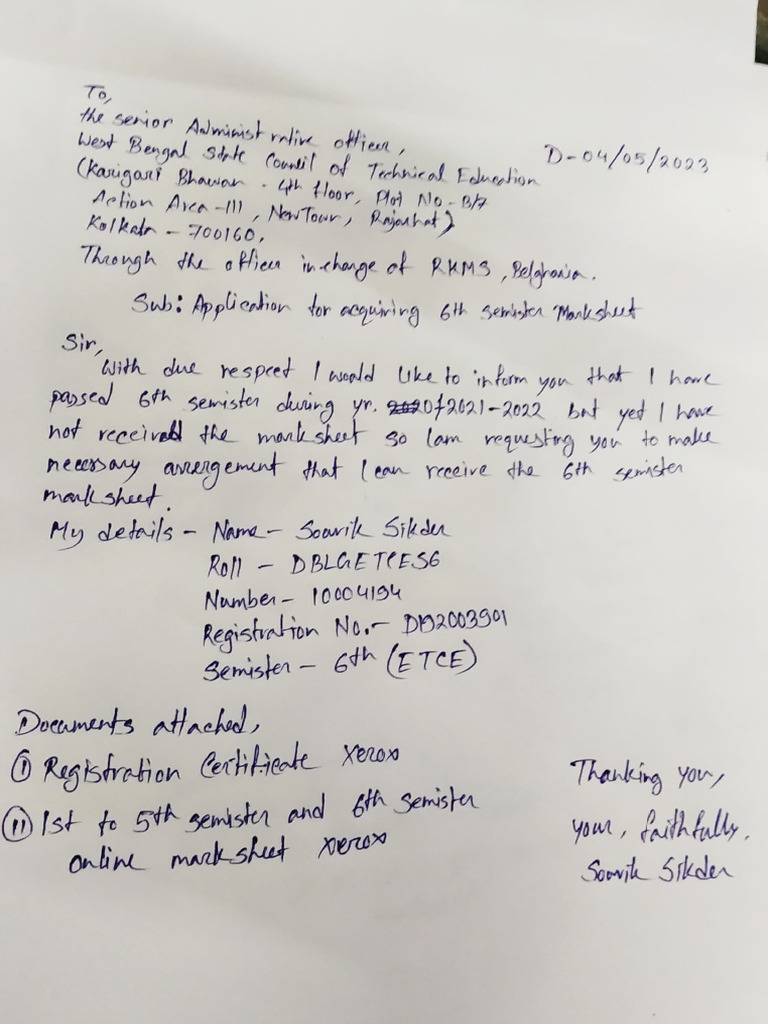 To,
the senior Administrative officer,
West Bengal State Council of Technical Education
D-04/05/2023
(Karigari Bhawan - 4th floor, Plot No-B/7
Action Area-III, New Town, Rajarhat)
Kolkata - 700160,
Through the officer in-charge of RKMS, Belgharia.
Sub: Application for acquiring 6th semister Marksheet
Sir,
With due respect I would like to inform you that I have
passed 6th semister during yr. 2021-2022 but yet I have
not received the marksheet so I am requesting you to make
necessary arrergement that I can receive the 6th semister
marksheet.
My details - Name - Souvik Sikder
Roll - DBLGETCES6
Number - 10004194
Registration No.- D192003901
Semister - 6th (ETCE)
Documents attached,
(I) Registration Certificate Xerox
(II) 1st to 5th semister and 6th semister
online marksheet xerox
Thanking you,
your, faithfully,
Souvik Sikder